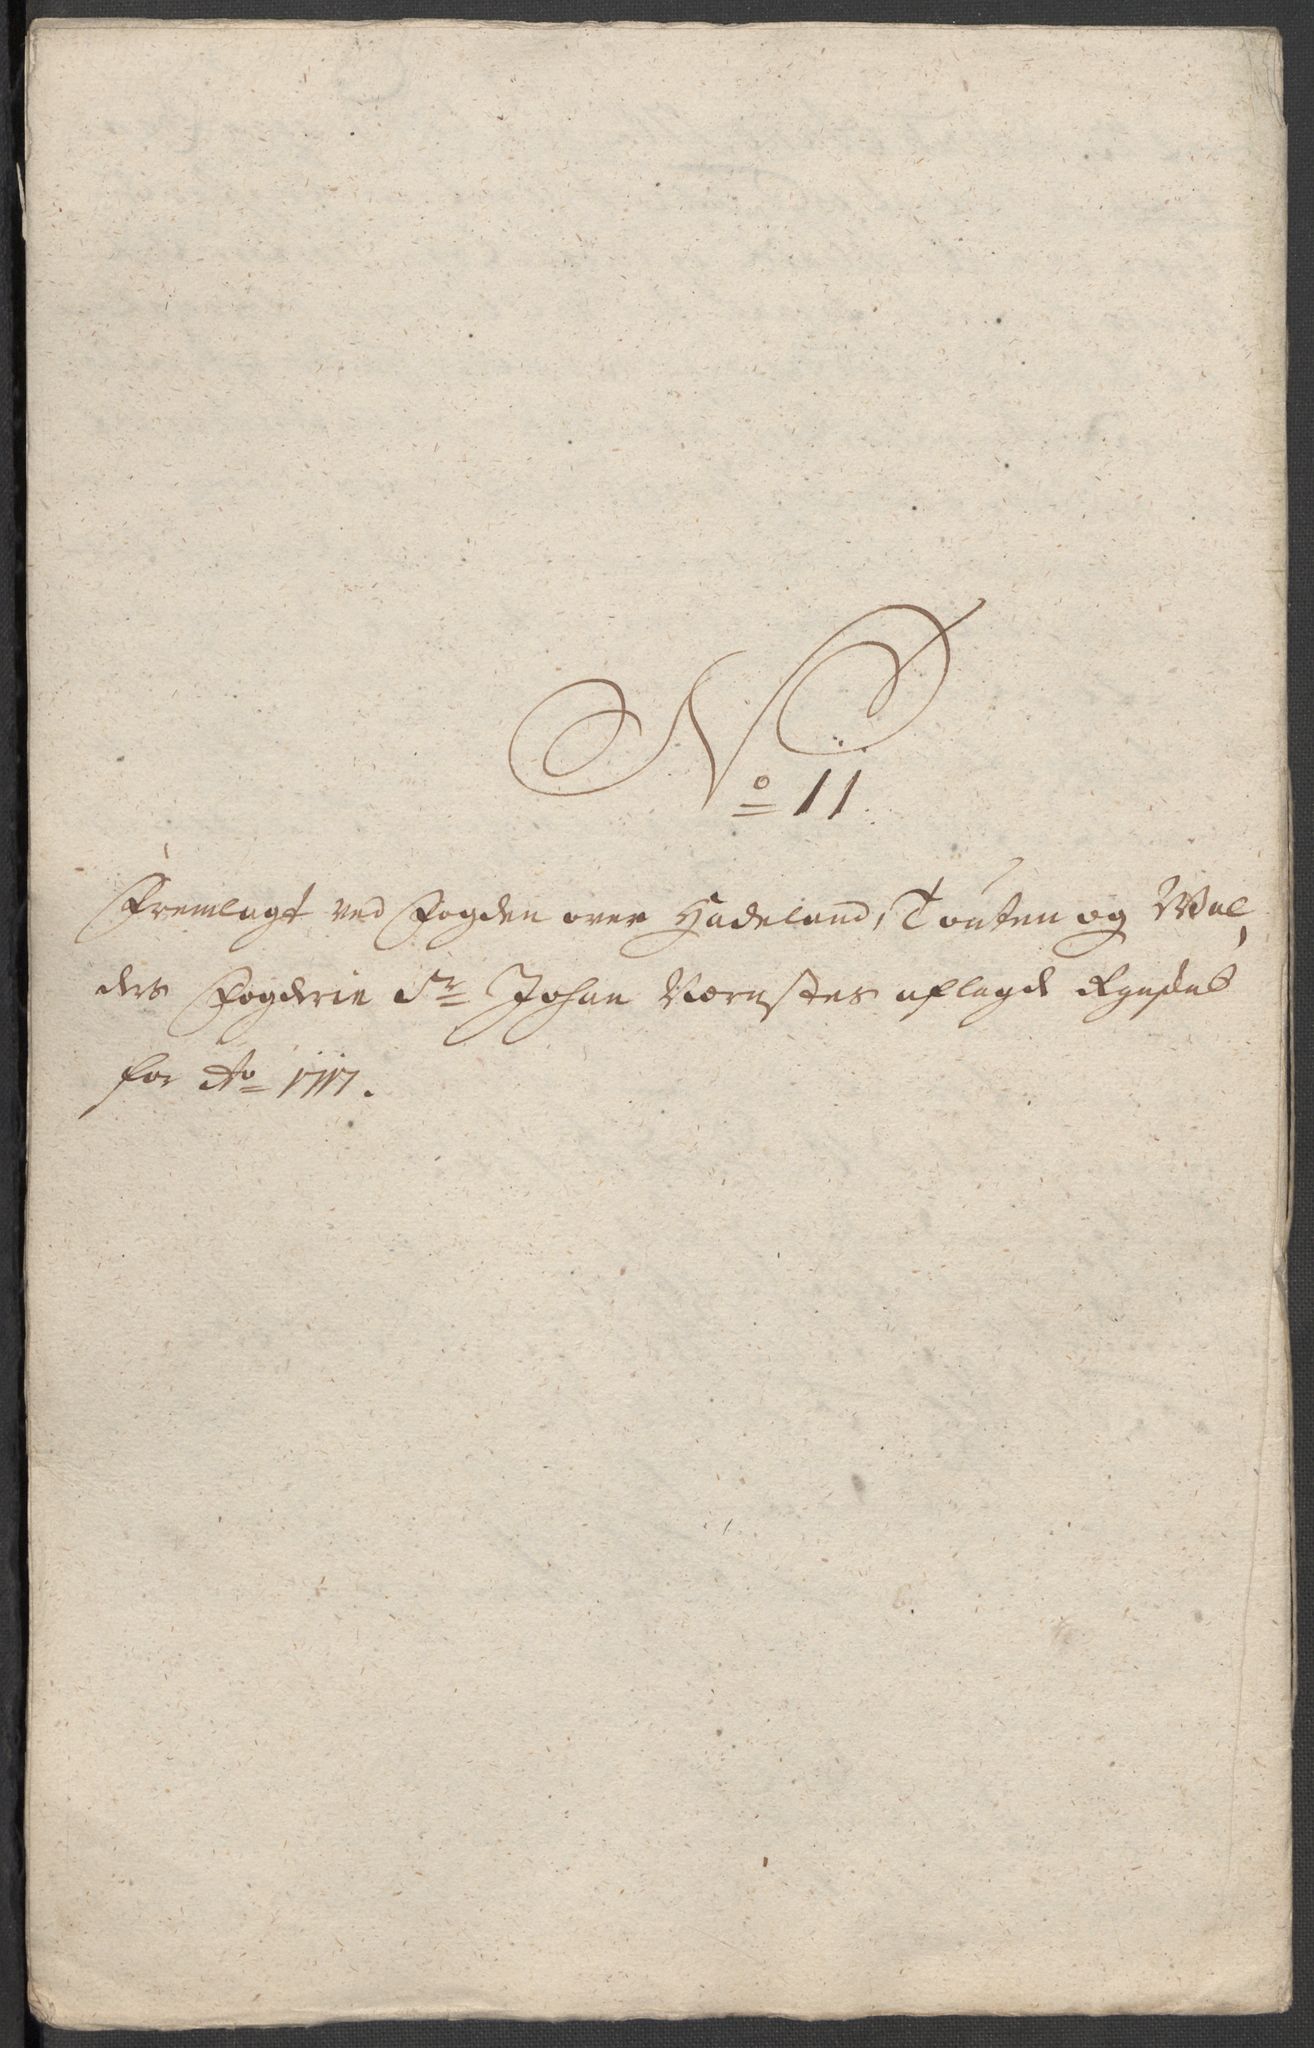 No 11.
Fremlagt ved Fogden over Hadeland, Touten og Wal,
ders Fogderie Sr Johan Værnstes aflagde
for Ao 1717.